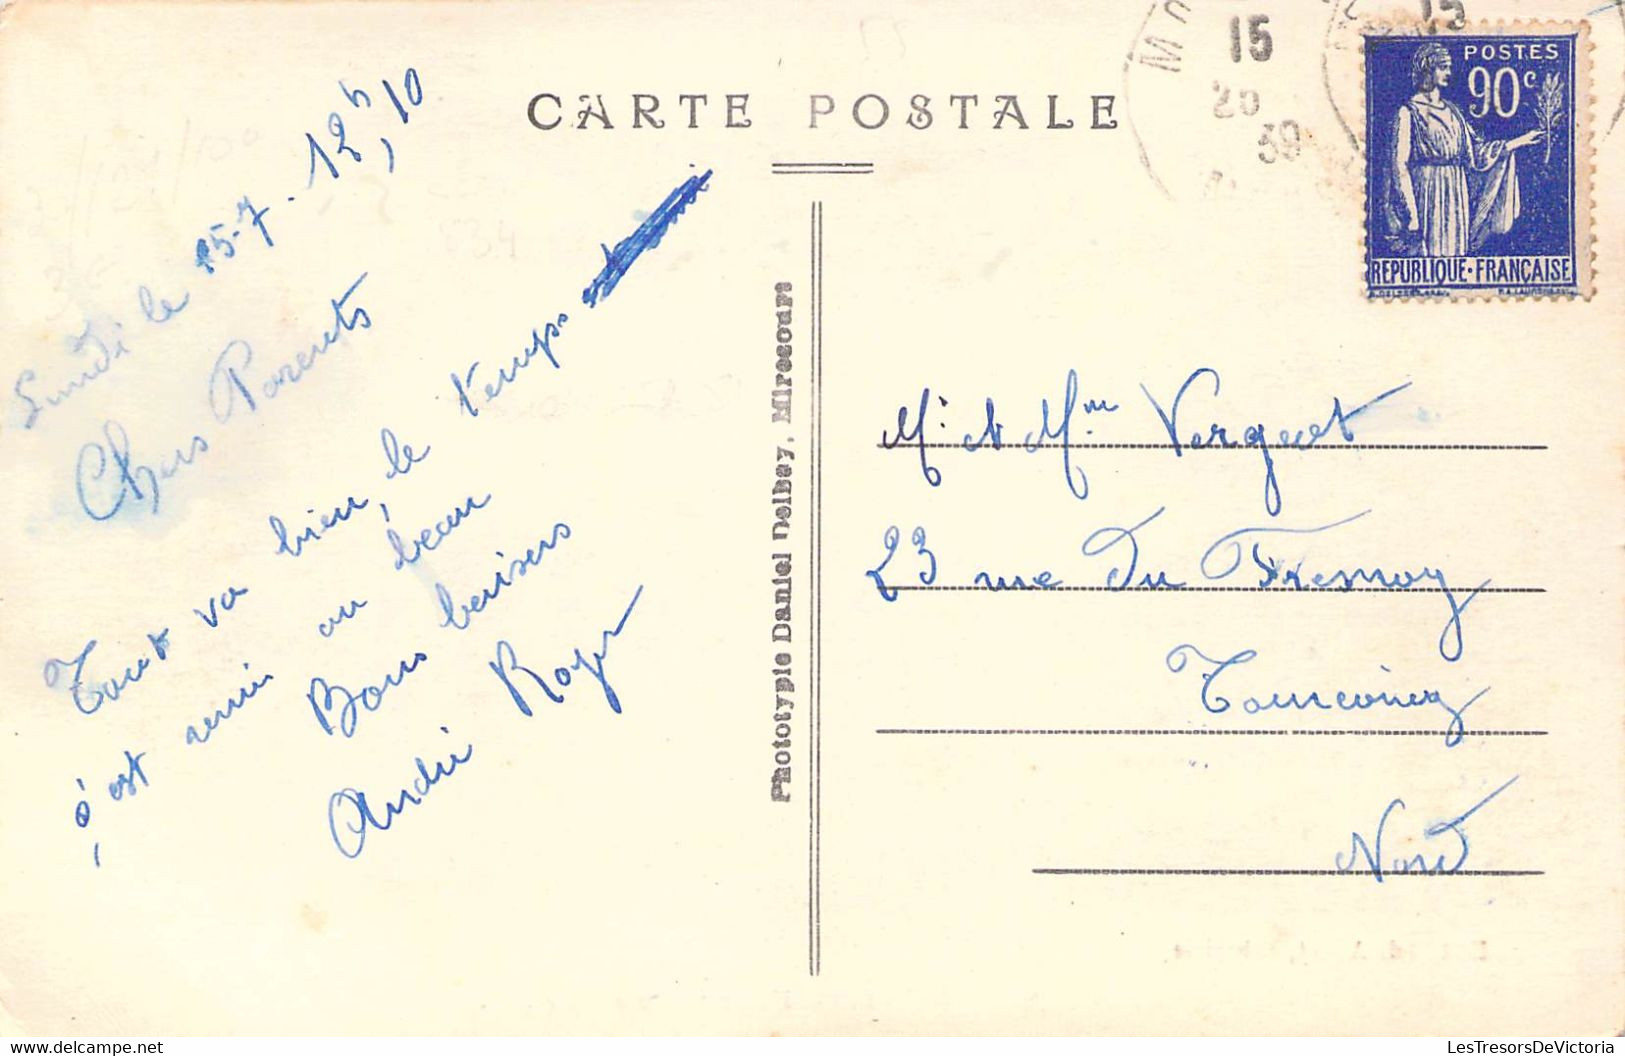 CARTE POSTALE
15
39
15
POSTES
90c
REPUBLIQUE·FRANÇAISE
Lundi le 15-7. 12h,10
Chers Parents
Tout va bien, le temps
s'est remis au beau
Bons baisers
André Roger
Phototypie Daniel Delbey, Mirecourt
Mr et Mme Verquet
23 rue Du Fresnoy
Tourcoing
Nord
LesTresorsDeVictoria.com